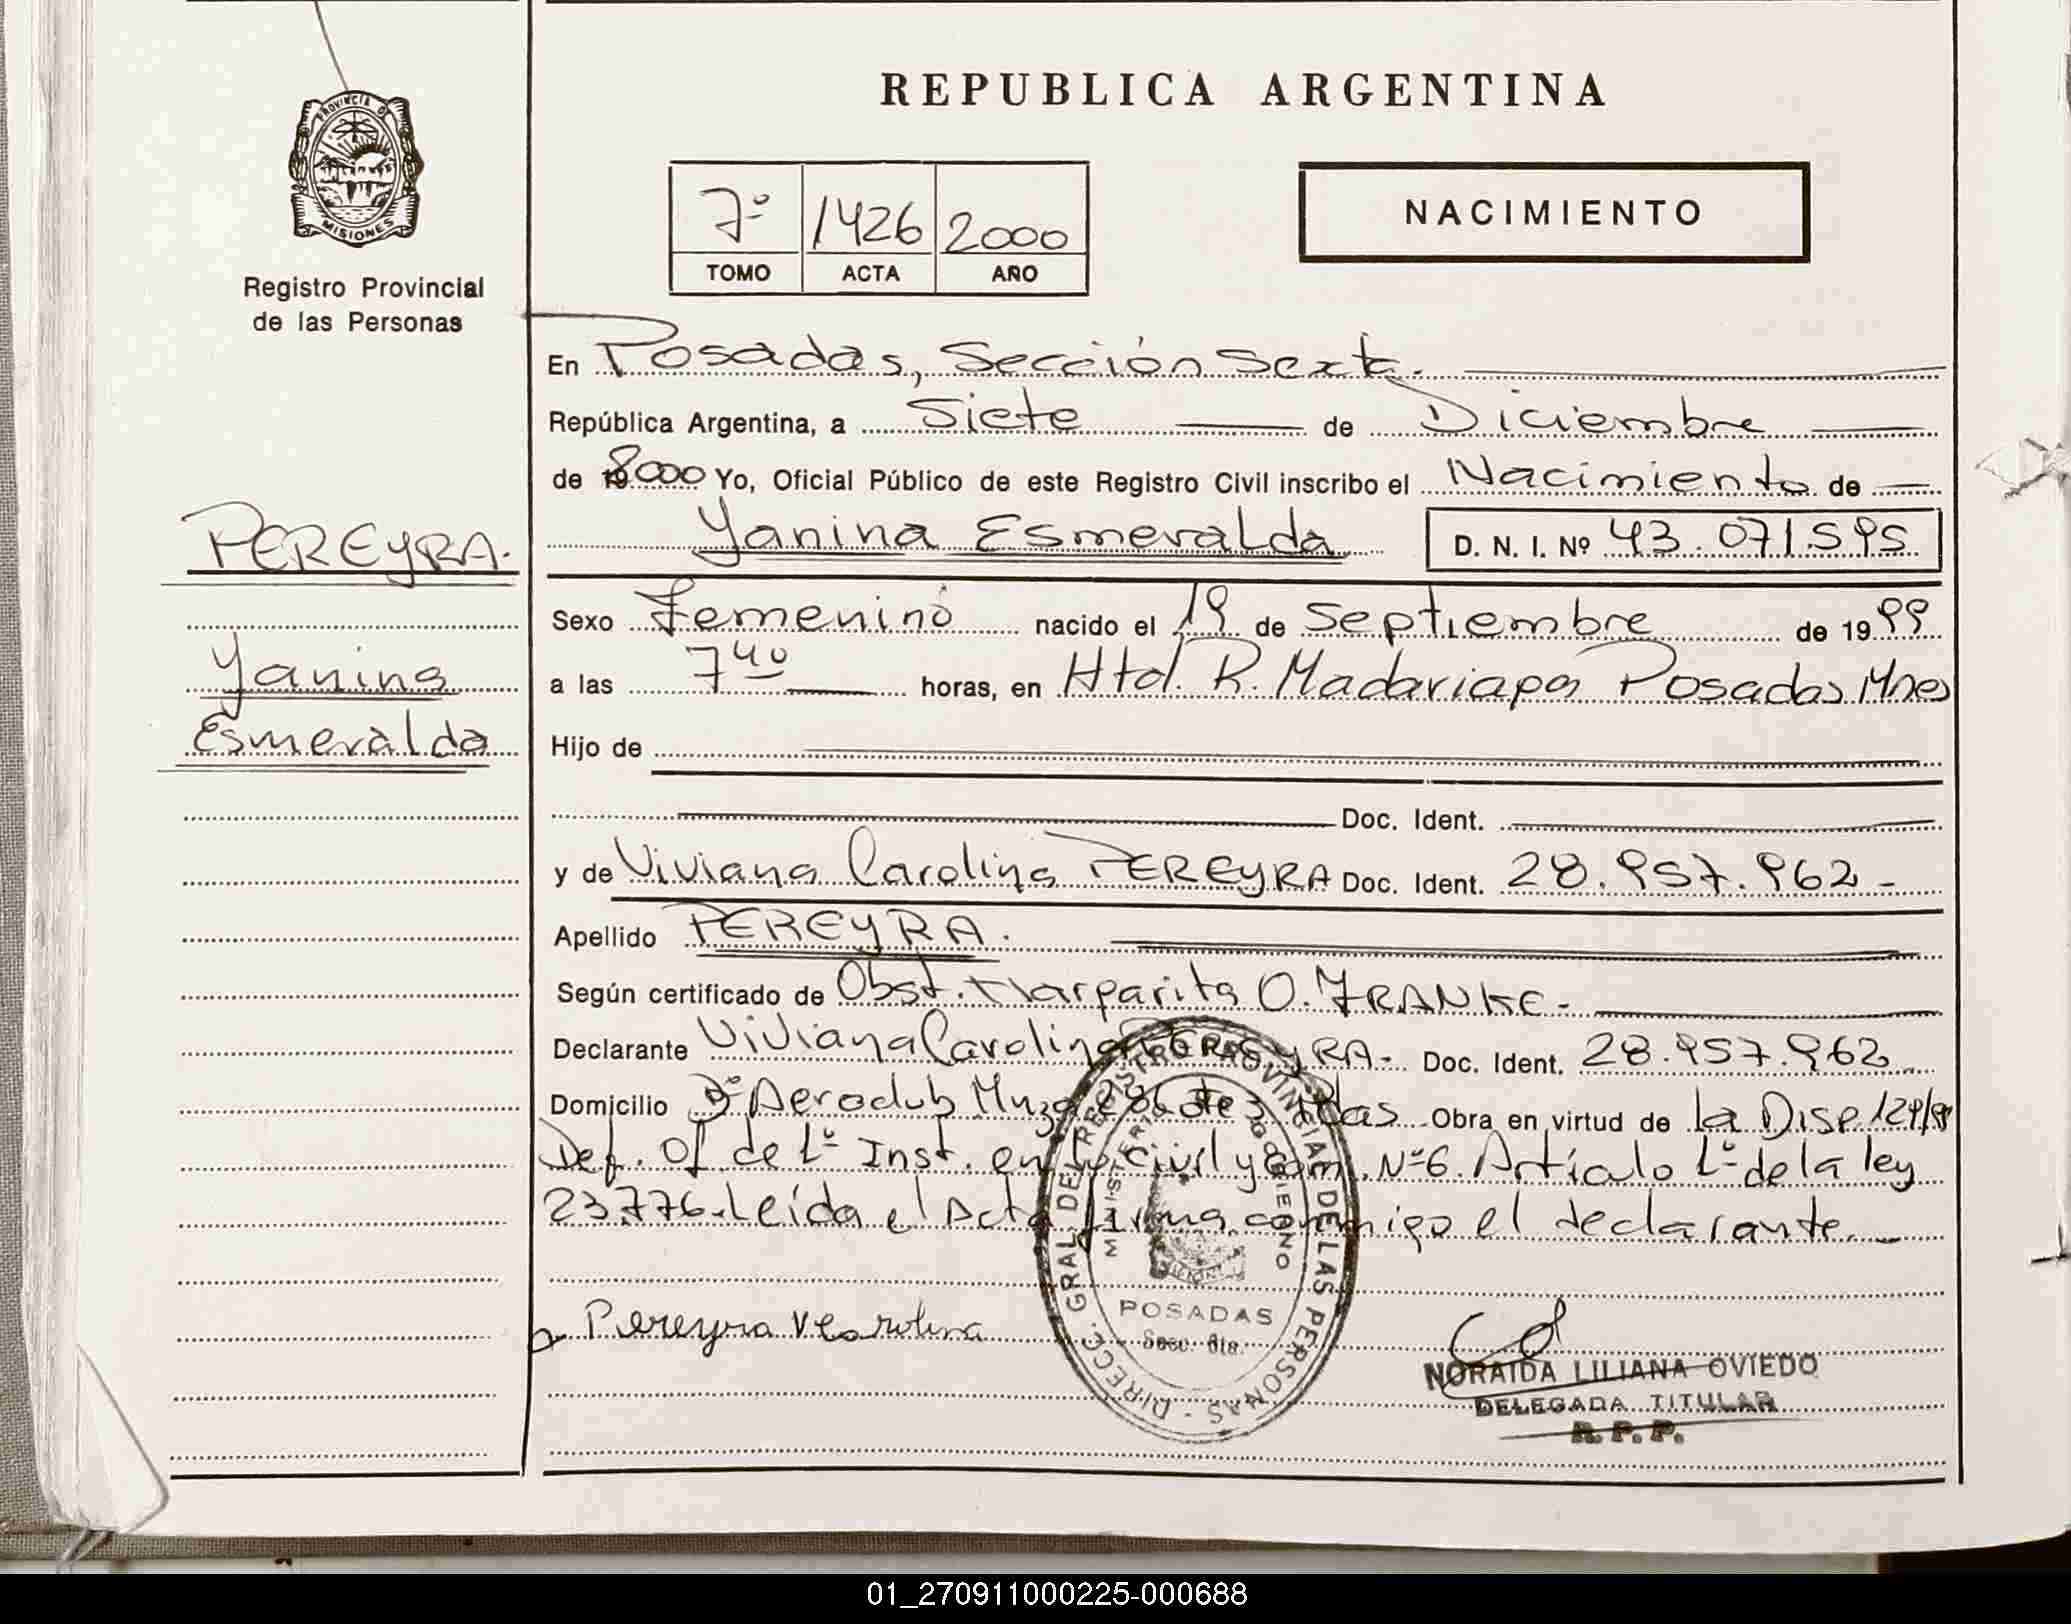 REPUBLICA ARGENTINA
PROVINCIA DE MISIONES
Registro Provincial
de las Personas
7º 1426 2000
TOMO ACTA AÑO
NACIMIENTO
En Posadas, Sección Sexta.
República Argentina, a Siete de Diciembre
de 2000 Yo, Oficial Público de este Registro Civil inscribo el Nacimiento de
PEREYRA.
Yanina Esmeralda D. N. I. Nº 43.071.595
Sexo Femenino nacido el 19 de Septiembre de 1999
Yanina
a las 7 40 horas, en Htal. R. Madariaga Posadas Mnes
Esmeralda
Hijo de
Doc. Ident.
y de Viviana Carolina PEREYRA Doc. Ident. 28.957.962-
Apellido PEREYRA.
Según certificado de Obst. Margarita O. FRANKE-
Declarante Viviana Carolina PEREYRA- Doc. Ident. 28.957.962
Domicilio Bº Aeroclub Mza 286 Pdas Obra en virtud de la Disp 129/
Def. Of de 1º Inst. en lo civil y com. Nº6. Artículo 1º de la ley
23.776. Leída el Acta firma conmigo el declarante
Pereyra V Carolina
DIRECC. GRAL. DEL REGISTRO PROVINCIAL DE LAS PERSONAS
MINISTERIO DE GOBIERNO
POSADAS
Secc. 6ta.
NORAIDA LILIANA OVIEDO
DELEGADA TITULAR
R. P. P.
01_270911000225-000688